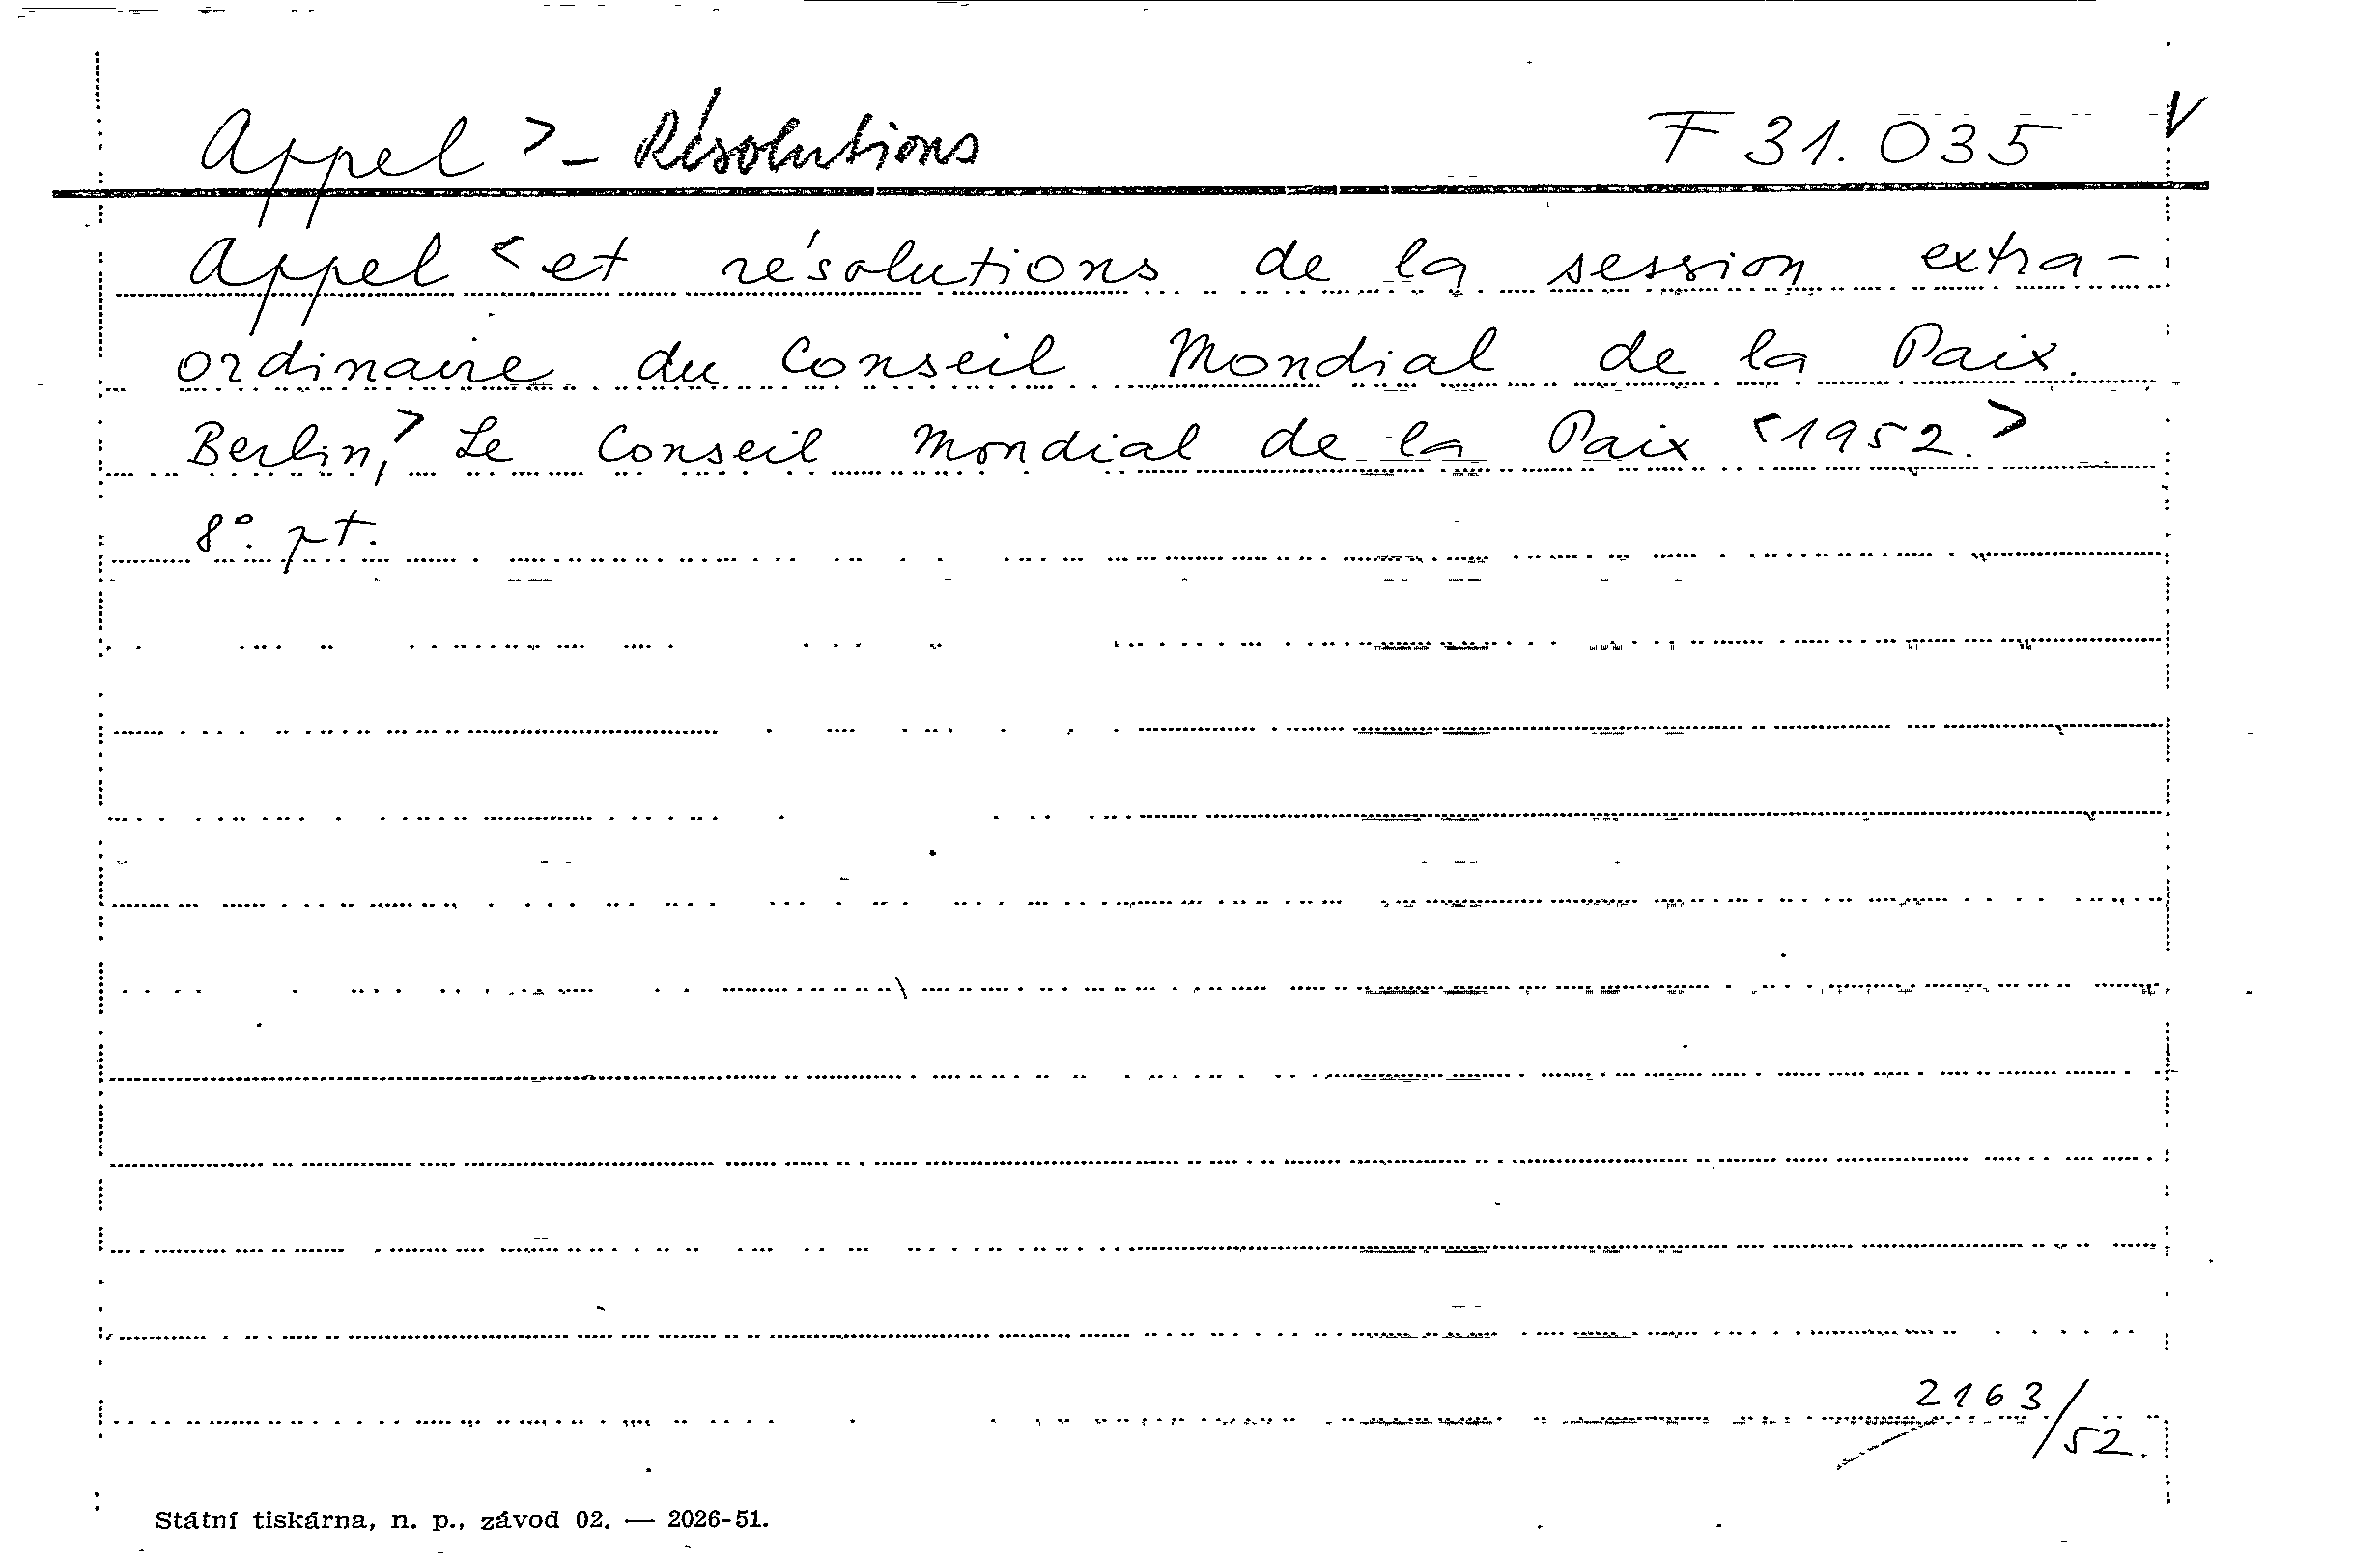 Appel > - Résolutions F 31.035 V
Appel < et résolutions de la session extra-
ordinaire du Conseil Mondial de la Paix.
Berlin,> Le Conseil Mondial de la Paix <1952.>
8°. pt.
2163/52.
Státní tiskárna, n. p., závod 02. — 2026-51.